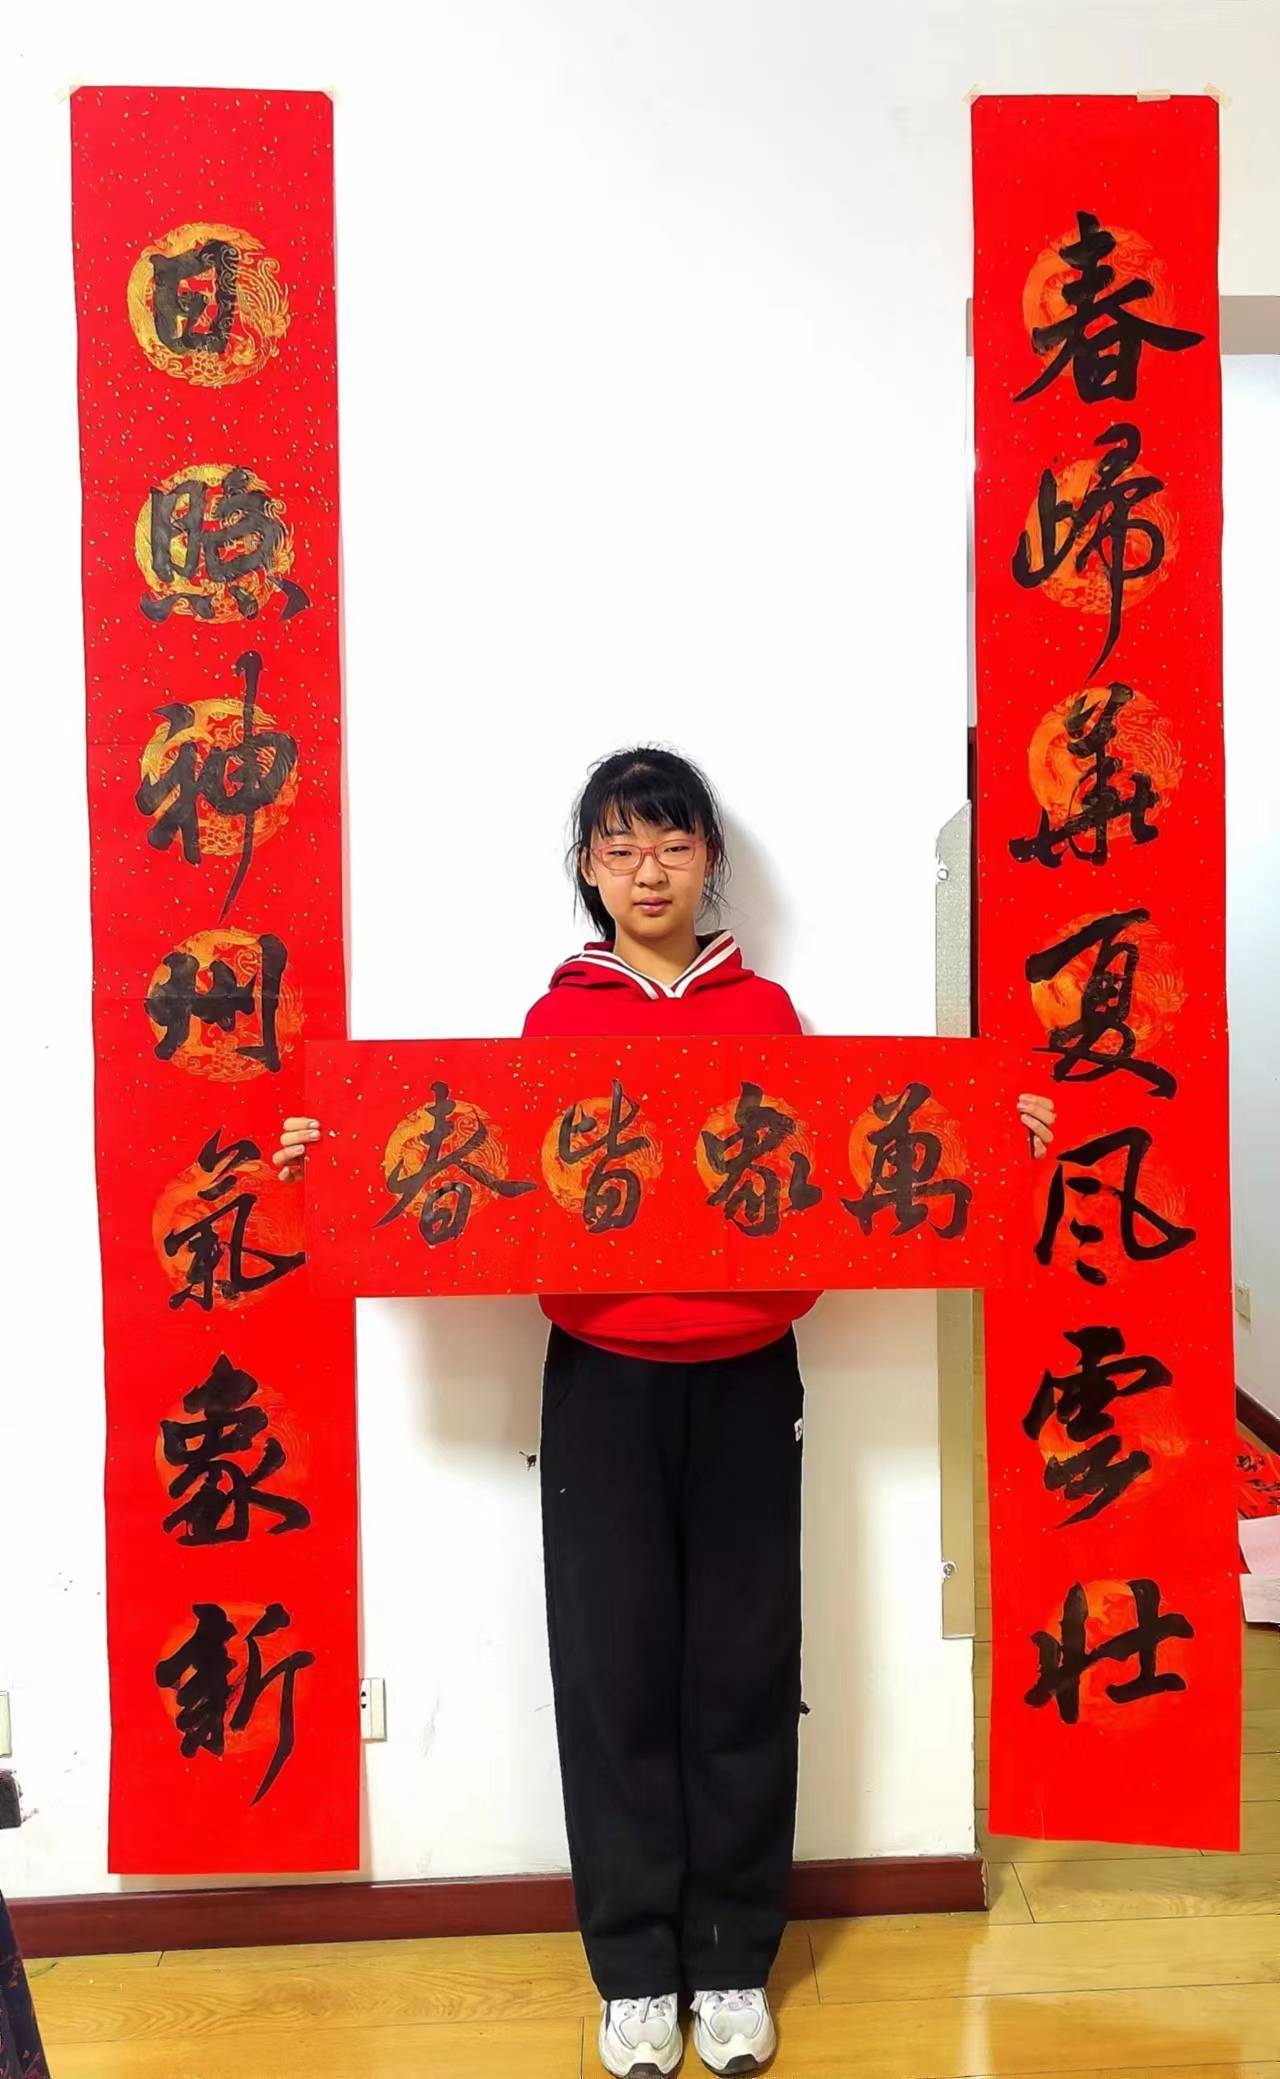 春歸華夏風雲壯
日照神州氣象新
萬家皆春